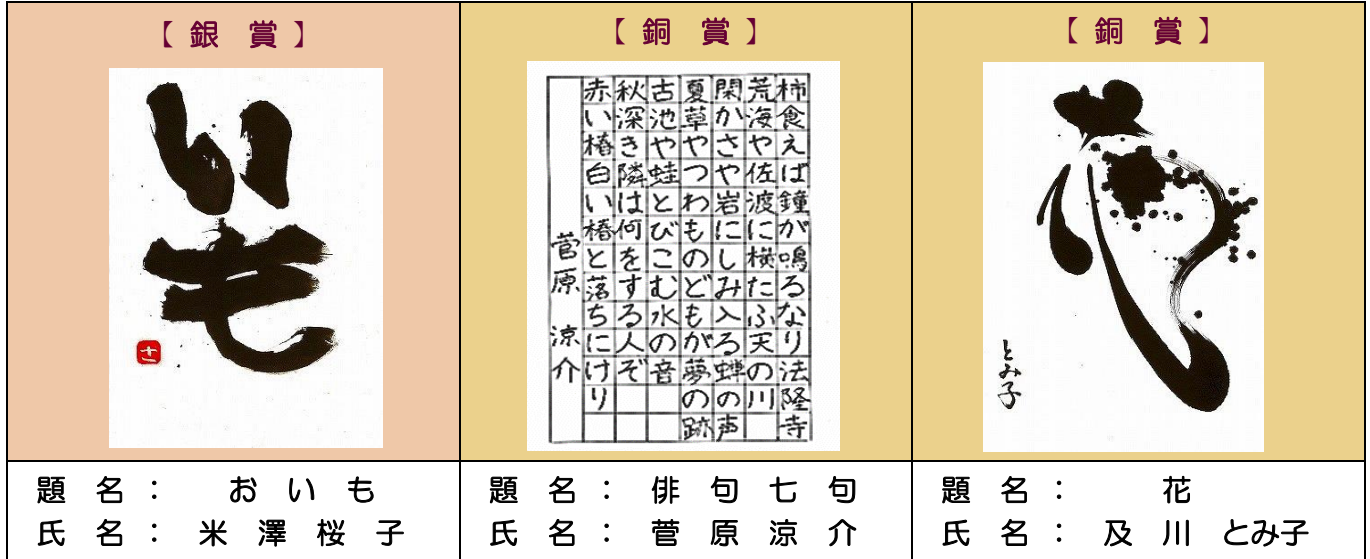 【 銀 賞 】
いも
題 名 : お い も
氏 名 : 米 澤 桜 子
【 銅 賞 】
柿食えば鐘が鳴るなり法隆寺
荒海や佐渡に横たふ天の川
閑かさや岩にしみ入る蝉の声
夏草やつわものどもが夢の跡
古池や蛙とびこむ水の音
秋深き隣は何をする人ぞ
赤い椿白い椿と落ちにけり
菅原 涼介
題 名 : 俳 句 七 句
氏 名 : 菅 原 涼 介
【 銅 賞 】
花
とみ子
題 名 : 花
氏 名 : 及 川 とみ子